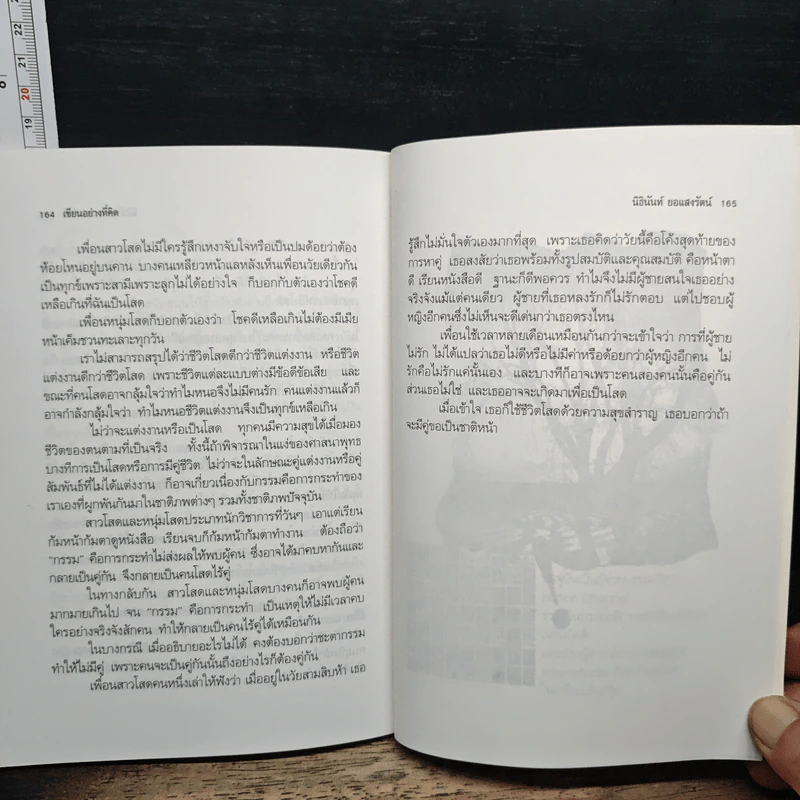 22
21
20
19
164 เขียนอย่างที่คิด
เพื่อนสาวโสดไม่มีใครรู้สึกเหงาจับใจหรือเป็นปมด้อยว่าต้อง
ห้อยโหนอยู่บนคาน บางคนเหลียวหน้าแลหลังเห็นเพื่อนวัยเดียวกัน
เป็นทุกข์เพราะสามีเพราะลูกไม่ได้อย่างใจ ก็บอกกับตัวเองว่าโชคดี
เหลือเกินที่ฉันเป็นโสด
เพื่อนหนุ่มโสดก็บอกตัวเองว่า โชคดีเหลือเกินไม่ต้องมีเมีย
หน้าเค็มชวนทะเลาะทุกวัน
เราไม่สามารถสรุปได้ว่าชีวิตโสดดีกว่าชีวิตแต่งงาน หรือชีวิต
แต่งงานดีกว่าชีวิตโสด เพราะชีวิตแต่ละแบบต่างมีข้อดีข้อเสีย และ
ขณะที่คนโสดอาจกลุ้มใจว่าทำไมหนอจึงไม่มีคนรัก คนแต่งงานแล้วก็
อาจกำลังกลุ้มใจว่า ทำไมหนอชีวิตแต่งงานจึงเป็นทุกข์เหลือเกิน
ไม่ว่าจะแต่งงานหรือเป็นโสด ทุกคนมีความสุขได้เมื่อมอง
ชีวิตของตนตามที่เป็นจริง ทั้งนี้ถ้าพิจารณาในแง่ของศาสนาพุทธ
บางทีการเป็นโสดหรือการมีคู่ชีวิต ไม่ว่าจะในลักษณะคู่แต่งงานหรือคู่
สัมพันธ์ที่ไม่ได้แต่งงาน ก็อาจเกี่ยวเนื่องกับกรรมคือการกระทำของ
เราเองที่ผูกพันกันมาในชาติภพต่างๆ รวมทั้งชาติภพปัจจุบัน
สาวโสดและหนุ่มโสดประเภทนักวิชาการที่วันๆ เอาแต่เรียน
ก้มหน้าก้มตาดูหนังสือ เรียนจบก็ก้มหน้าก้มตาทำงาน ต้องถือว่า
"กรรม" คือการกระทำไม่ส่งผลให้พบผู้คน ซึ่งอาจได้มาคบหากันและ
กลายเป็นคู่กัน จึงกลายเป็นคนโสดไร้คู่
ในทางกลับกัน สาวโสดและหนุ่มโสดบางคนก็อาจพบผู้คน
มากมายเกินไป จน "กรรม" คือการกระทำ เป็นเหตุให้ไม่มีเวลาคบ
ใครอย่างจริงจังสักคน ทำให้กลายเป็นคนไร้คู่ได้เหมือนกัน
ในบางกรณี เมื่ออธิบายอะไรไม่ได้ คงต้องบอกว่าชะตากรรม
ทำให้ไม่มีคู่ เพราะคนจะเป็นคู่กันนั้นถึงอย่างไรก็ต้องคู่กัน
เพื่อนสาวโสดคนหนึ่งเล่าให้ฟังว่า เมื่ออยู่ในวัยสามสิบห้า เธอ
นิธินันท์ ยอแสงรัตน์ 165
รู้สึกไม่มั่นใจตัวเองมากที่สุด เพราะเธอคิดว่าวัยนี้คือโค้งสุดท้ายของ
การหาคู่ เธอสงสัยว่าเธอพร้อมทั้งรูปสมบัติและคุณสมบัติ คือหน้าตา
ดี เรียนหนังสือดี ฐานะก็ดีพอควร ทำไมจึงไม่มีผู้ชายสนใจเธออย่าง
จริงจังแม้แต่คนเดียว ผู้ชายที่เธอหลงรักก็ไม่รักตอบ แต่ไปชอบผู้
หญิงอีกคนซึ่งไม่เห็นจะดีเด่นกว่าเธอตรงไหน
เพื่อนใช้เวลาหลายเดือนเหมือนกันกว่าจะเข้าใจว่า การที่ผู้ชาย
ไม่รัก ไม่ได้แปลว่าเธอไม่ดีหรือไม่มีค่าหรือด้อยกว่าผู้หญิงอีกคน ไม่
รักคือไม่รักแค่นั้นเอง และบางทีก็อาจเพราะคนสองคนนั้นคือคู่กัน
ส่วนเธอไม่ใช่ และเธออาจจะเกิดมาเพื่อเป็นโสด
เมื่อเข้าใจ เธอก็ใช้ชีวิตโสดด้วยความสุขสำราญ เธอบอกว่าถ้า
จะมีคู่ขอเป็นชาติหน้า